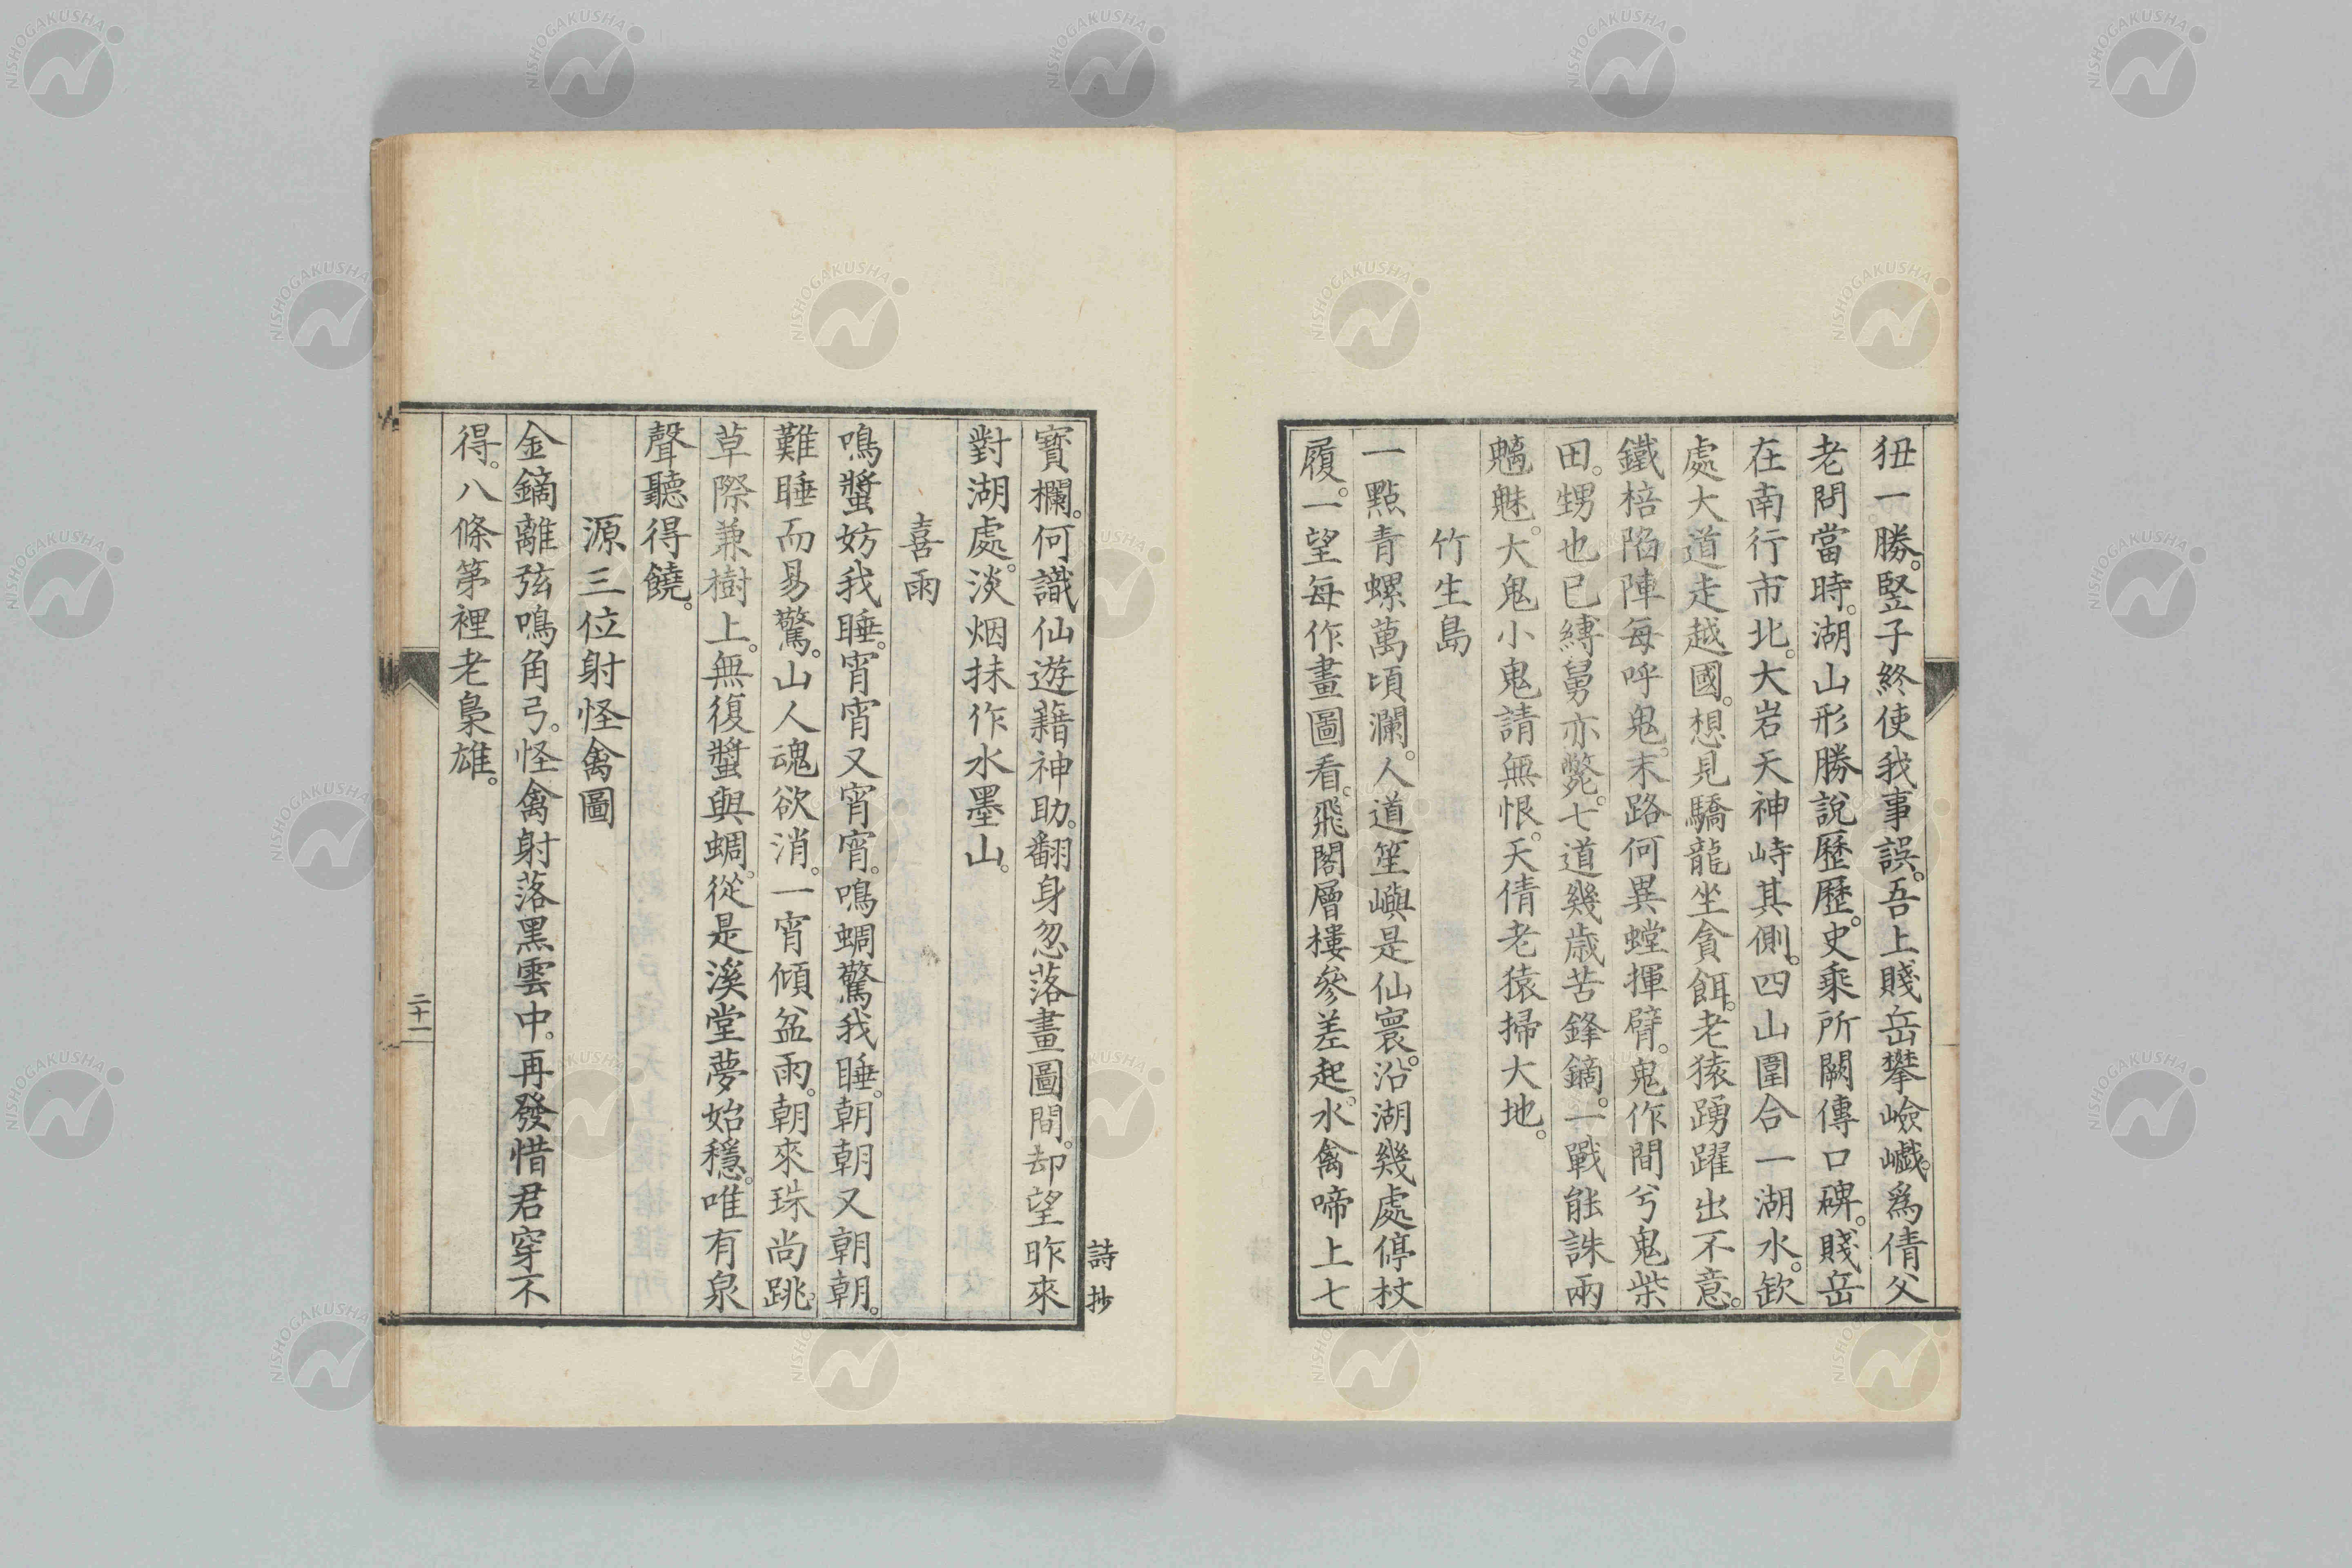 狃一勝。豎子終使我事誤。吾上賤岳攀嶮巇。爲倩父
老問當時。湖山形勝說歷歷。史乘所闕傳口碑。賤岳
在南行市北。大岩天神峙其側。四山圍合一湖水。欽
處大道走越國。想見驕龍坐貪餌。老猿踴躍出不意。
鐵棓陷陣每呼鬼。末路何異螳揮臂。鬼作間兮鬼柴
田。甥也已縛舅亦斃。七道幾歲苦鋒鏑。一戰能誅兩
魑魅。大鬼小鬼請無恨。天倩老猿掃大地。
竹生島
一點青螺萬頃瀾。人道笙嶼是仙寰。沿湖幾處停杖
履。一望每作畫圖看。飛閣層樓參差起。水禽啼上七
寳欄。何識仙遊藉神助。翻身忽落畫圖間。却望昨來
對湖處。淡烟抹作水墨山。
喜雨
鳴螿妨我睡。宵宵又宵宵。鳴蜩驚我睡。朝朝又朝朝。
難睡而易驚。山人魂欲消。一宵傾盆雨。朝來珠尚跳。
草際兼樹上。無復螿與蜩。從是溪堂夢始穩。唯有泉
聲聽得饒。
源三位射怪禽圖
金鏑離弦鳴角弓。怪禽射落黑雲中。再發惜君穿不
得。八條第裡老梟雄。
詩抄
二十一
NISHOGAKUSHA